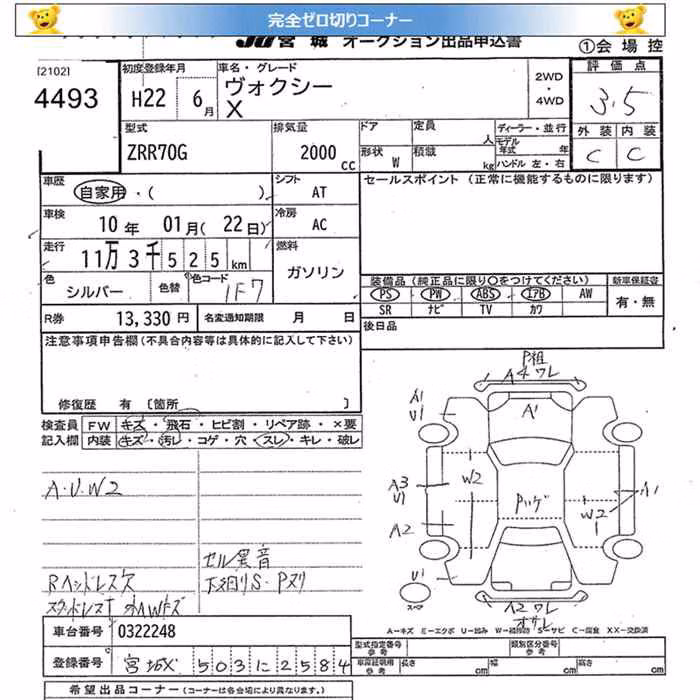 完全ゼロ切りコーナー
JU宮城 オークション出品申込書
①会場控
[2102]
4493
初度登録年月
H22 6月
車名・グレード
ヴォクシー
X
2WD・4WD
評価点
3.5
外装 内装
C C
型式
ZRR70G
排気量
2000cc
ドア
定員 人
形状 W
積載 kg
ディーラー・並行
モデル年式 年式
ハンドル 左・右
車歴 自家用・( )
シフト AT
セールスポイント (正常に機能するものに限ります)
車検 10年 01月(22日)
冷房 AC
走行 11万3千525km
燃料 ガソリン
色 シルバー 色替
色コード 1F7
装備品(純正品に限り○をつけてください)
新車保証書
PS PW ABS エアB AW
SR ナビ TV カワ
有・無
R券 13,330円
名変通知期限 月 日
後日品
注意事項申告欄(不具合内容等は具体的に記入して下さい)
修復歴 有 〔箇所 〕
検査員記入欄
FW キズ・飛石・ヒビ割・リペア跡・×要
内装 キズ・汚レ・コゲ・穴・スレ・キレ・破レ
A・U・W2
セル異音
Rヘッドレス欠
下廻りS・Pヌリ
スタッドレスT 外AWキズ
P祖
A4ワレ
A1
U1
A1
A3
U1
W2
Pツゲ
W2
A1
A2
U1
スペア
A2ワレ
オサレ
A-キズ E-エクボ U-凹み W-補修跡 S-サビ C-腐食 XX-交換済
車台番号 0322248
登録番号 宮城X 503に2584
型式指定番号 参考
類別区分番号 参考
車庫証明用 参考
長さ cm
幅 cm
高さ cm
希望出品コーナー (コーナーは各会場により異なります。)